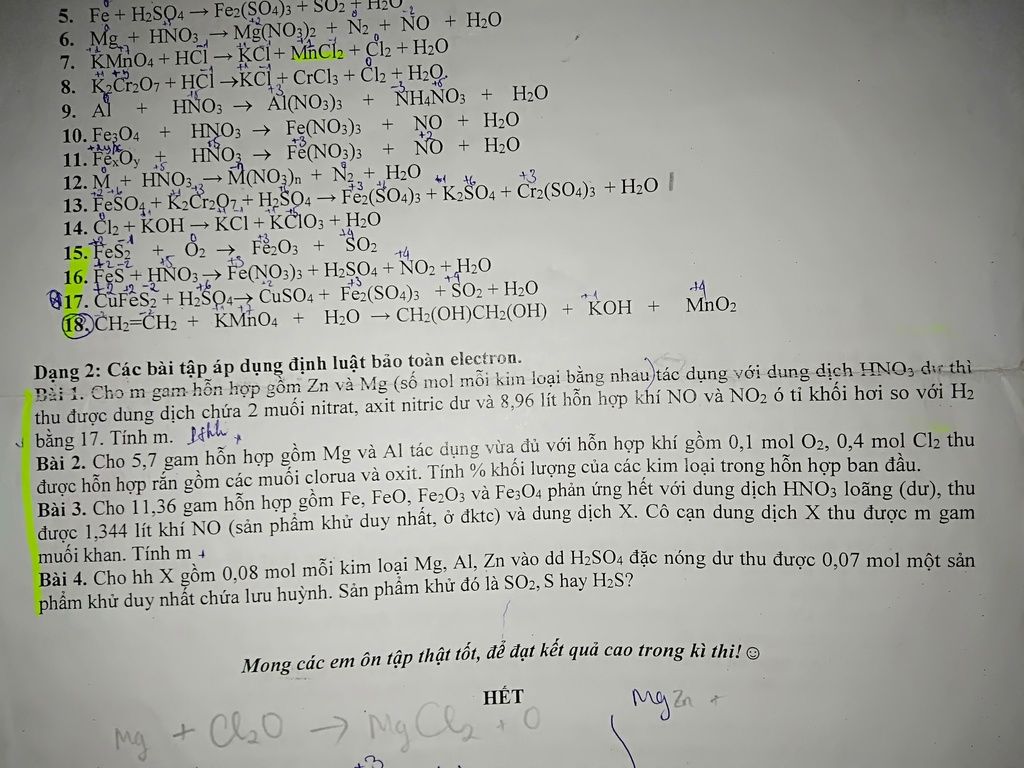 5. Fe + H2SO4 → Fe2(SO4)3 + SO2 + H2O
6. Mg + HNO3 → Mg(NO3)2 + N2 + NO + H2O
7. KMnO4 + HCl → KCl + MnCl2 + Cl2 + H2O
8. K2Cr2O7 + HCl →KCl + CrCl3 + Cl2 + H2O
9. Al + HNO3 → Al(NO3)3 + NH4NO3 + H2O
10. Fe3O4 + HNO3 → Fe(NO3)3 + NO + H2O
11. FexOy + HNO3 → Fe(NO3)3 + NO + H2O
12. M + HNO3 → M(NO3)n + N2 + H2O
13. FeSO4 + K2Cr2O7 + H2SO4 → Fe2(SO4)3 + K2SO4 + Cr2(SO4)3 + H2O
14. Cl2 + KOH → KCl + KClO3 + H2O
15. FeS2 + O2 → Fe2O3 + SO2
16. FeS + HNO3 → Fe(NO3)3 + H2SO4 + NO2 + H2O
17. CuFeS2 + H2SO4→ CuSO4 + Fe2(SO4)3 + SO2 + H2O
18. CH2=CH2 + KMnO4 + H2O → CH2(OH)CH2(OH) + KOH + MnO2
Dạng 2: Các bài tập áp dụng định luật bảo toàn electron.
Bài 1. Cho m gam hỗn hợp gồm Zn và Mg (số mol mỗi kim loại bằng nhau) tác dụng với dung dịch HNO3 dư thì
thu được dung dịch chứa 2 muối nitrat, axit nitric dư và 8,96 lít hỗn hợp khí NO và NO2 ó ti khối hơi so với H2
bằng 17. Tính m.
Bài 2. Cho 5,7 gam hỗn hợp gồm Mg và Al tác dụng vừa đủ với hỗn hợp khí gồm 0,1 mol O2, 0,4 mol Cl2 thu
được hỗn hợp rắn gồm các muối clorua và oxit. Tính % khối lượng của các kim loại trong hỗn hợp ban đầu.
Bài 3. Cho 11,36 gam hỗn hợp gồm Fe, FeO, Fe2O3 và Fe3O4 phản ứng hết với dung dịch HNO3 loãng (dư), thu
được 1,344 lít khí NO (sản phẩm khử duy nhất, ở đktc) và dung dịch X. Cô cạn dung dịch X thu được m gam
muối khan. Tính m
Bài 4. Cho hh X gồm 0,08 mol mỗi kim loại Mg, Al, Zn vào dd H2SO4 đặc nóng dư thu được 0,07 mol một sản
phẩm khử duy nhất chứa lưu huỳnh. Sản phẩm khử đó là SO2, S hay H2S?
Mong các em ôn tập thật tốt, để đạt kết quả cao trong kì thi! ☺
HẾT
Mg Zn +
Mg + Cl2O → MgCl2 + O
+3